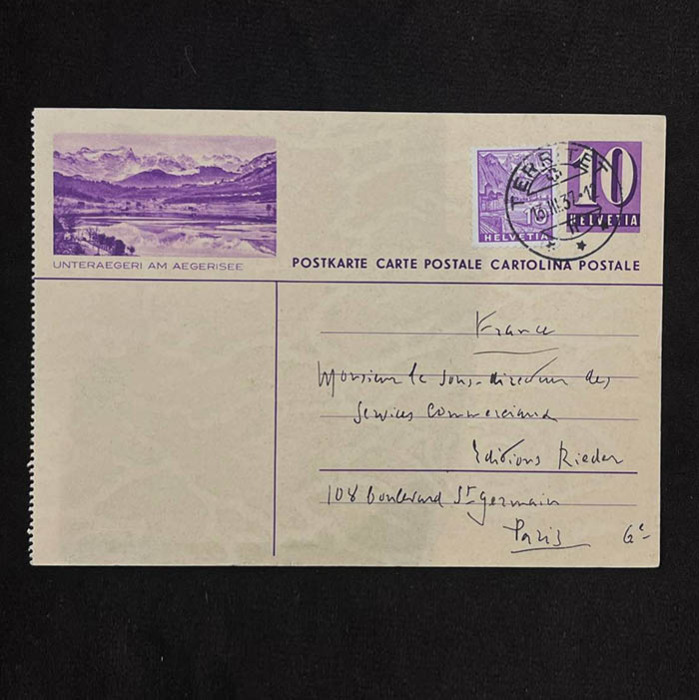 UNTERAEGERI AM AEGERISEE
TERRITET
HELVETIA
10
HELVETIA
POSTKARTE CARTE POSTALE CARTOLINA POSTALE
France
Monsieur le sous-directeur des
Services Commerciaux
Editions Rieder
108 boulevard St Germain
Paris 6e